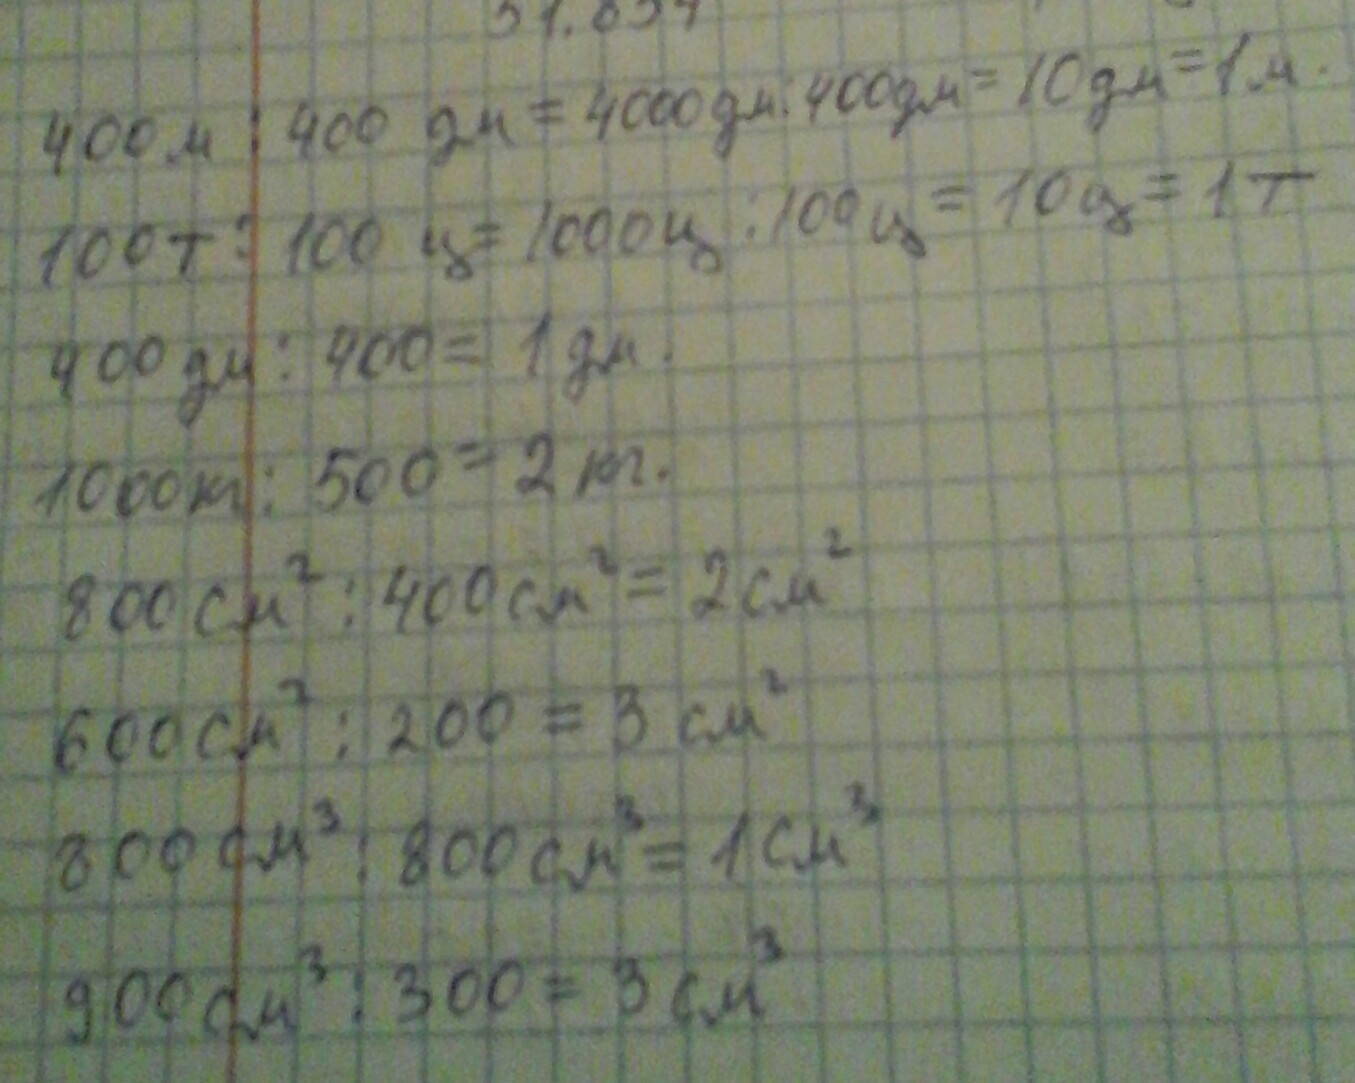 400м : 400 дм = 4000дм : 400дм = 10дм = 1м.
100т : 100 ц = 1000ц : 100ц = 10ц = 1т
400дм : 400 = 1дм.
1000кг : 500 = 2кг.
800см² : 400см² = 2см²
600см² : 200 = 3см²
800см³ : 800см³ = 1см³
900см³ : 300 = 3см³